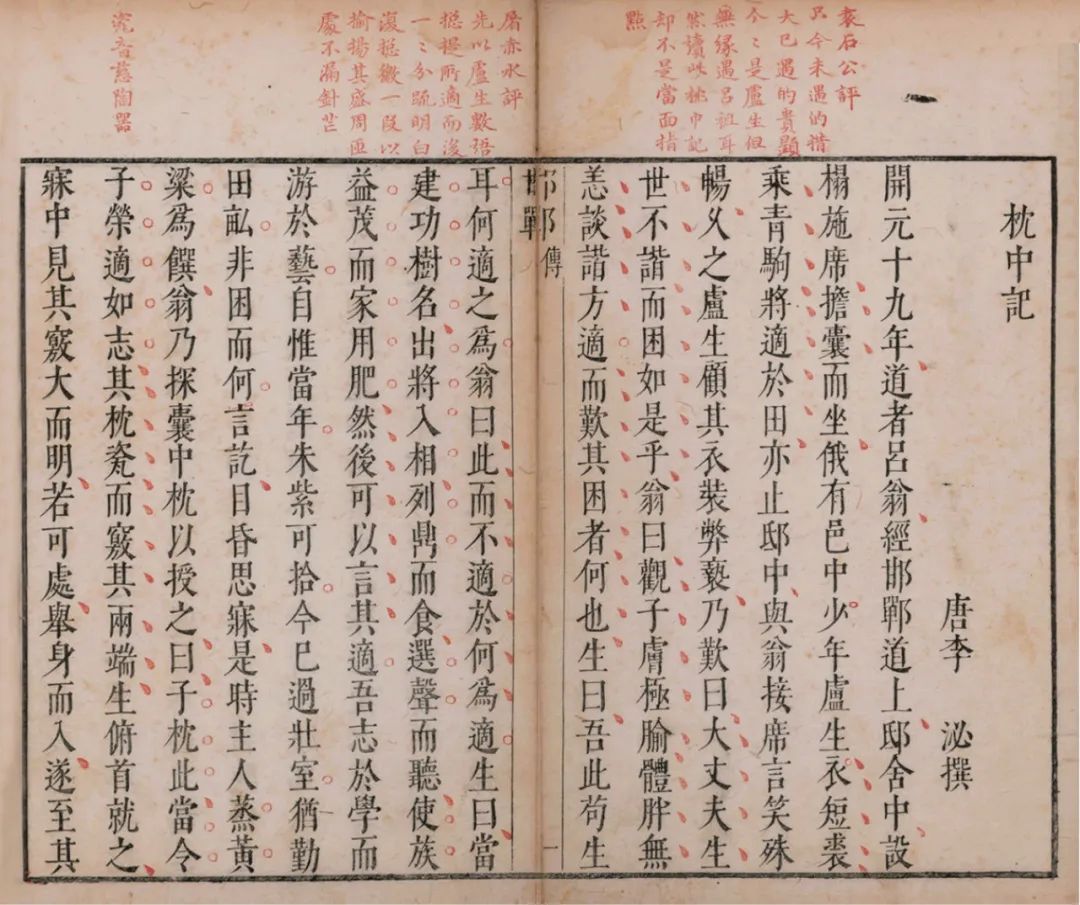 袁石公評
只今未遇的措
大已遇的貴顯
今〻是盧生但
無緣遇呂祖耳
然讀此枕中記
却不是當面指
點
枕中記
唐李　泌撰
開元十九年道者呂翁經邯鄲道上邸舍中設
榻施席擔囊而坐俄有邑中少年盧生衣短裘
乘青駒將適於田亦止邸中與翁接席言笑殊
暢久之盧生顧其衣裝弊褻乃歎曰大丈夫生
世不諧而困如是乎翁曰觀子膚極腧體胖無
恙談諧方適而歎其困者何也生曰吾此苟生
邯鄲
傳
一
屠赤水評
先以盧生數語
挺提所適而後
一〻分疏明白
復挺繳一段以
揄揚其盛周匝
處不漏針芒
耳何適之爲翁曰此而不適於何爲適生曰當
建功樹名出將入相列鼎而食選聲而聽使族
益茂而家用肥然後可以言其適吾志於學而
游於藝自惟當年朱紫可拾今已過壯室猶勤
田畝非困而何言訖目昏思寐是時主人蒸黃
粱爲饌翁乃探囊中枕以授之曰子枕此當令
子榮適如志其枕瓷而竅其兩端生俯首就之
寐中見其竅大而明若可處舉身而入遂至其
瓷音慈陶器